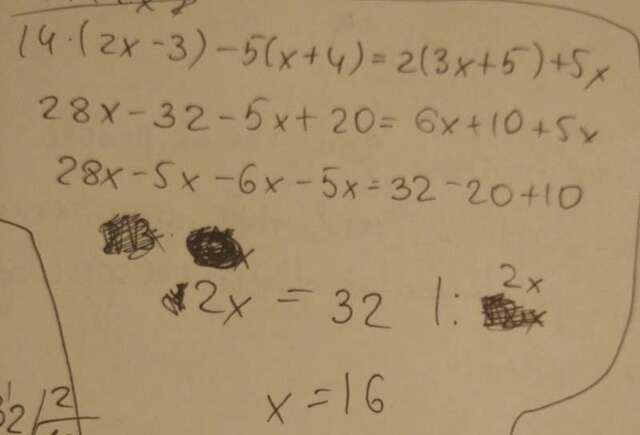 14·(2x-3)-5(x+4)=2(3x+5)+5x
28x-32-5x+20=6x+10+5x
28x-5x-6x-5x=32-20+10
2x=32 |: 2x
x=16